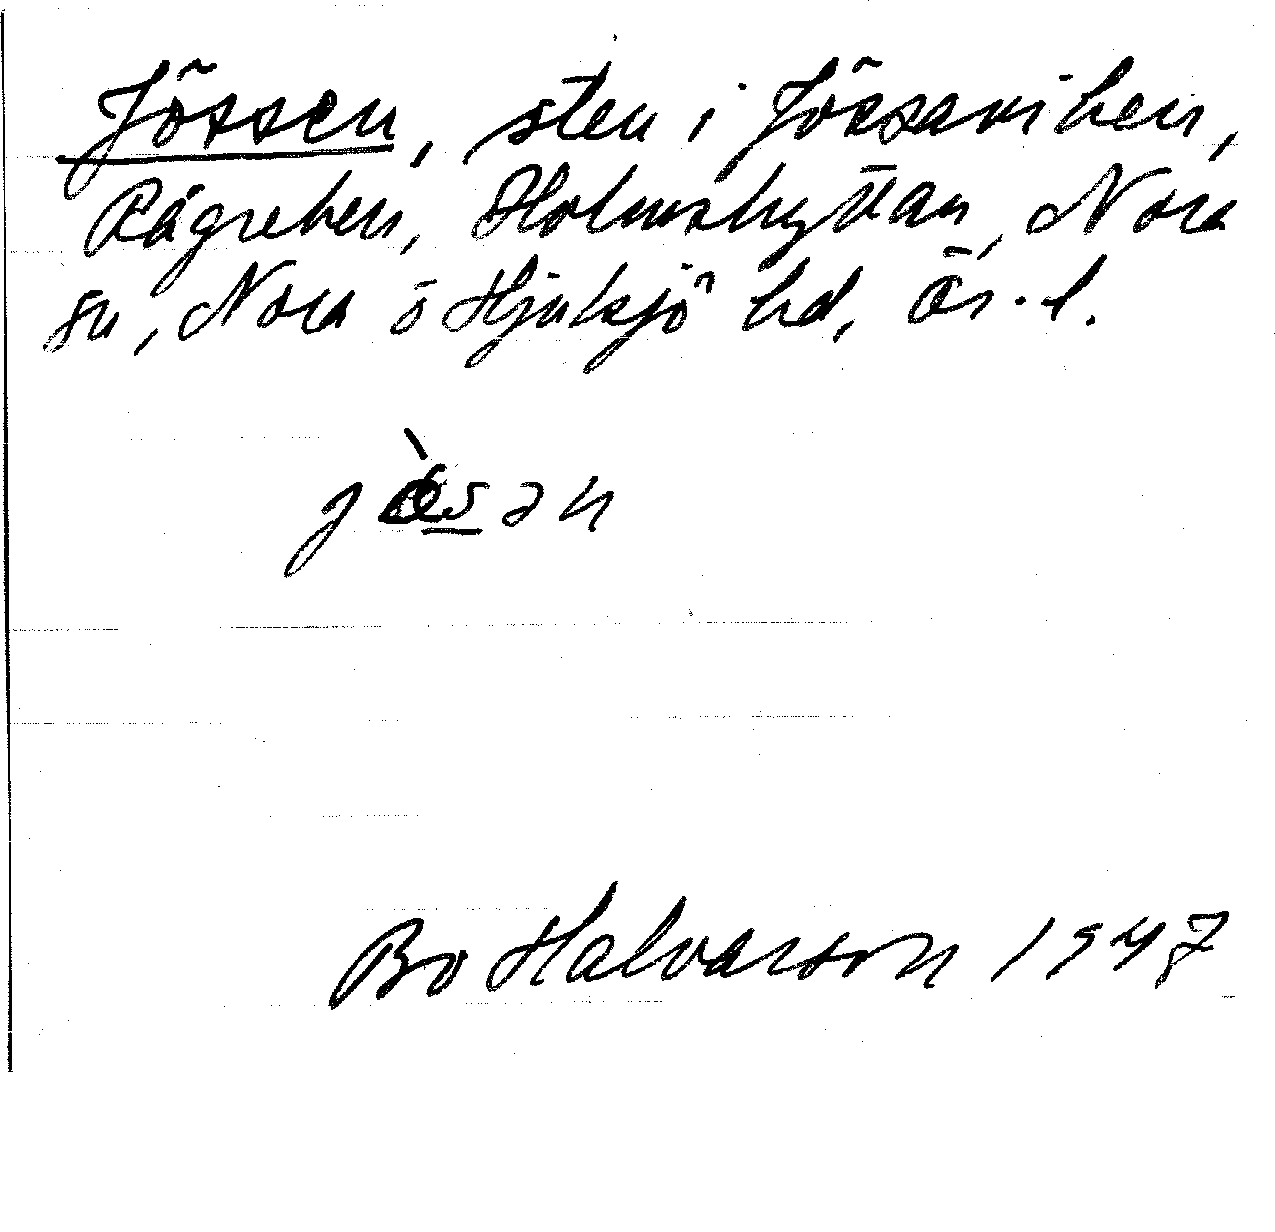 Jössen, sten i Jössaviken,
Rågreken, Holmshyttan, Nora
sn, Nora o Hjulsjö hd, Ör. l.
jòsən
Bo Halvarson 1947